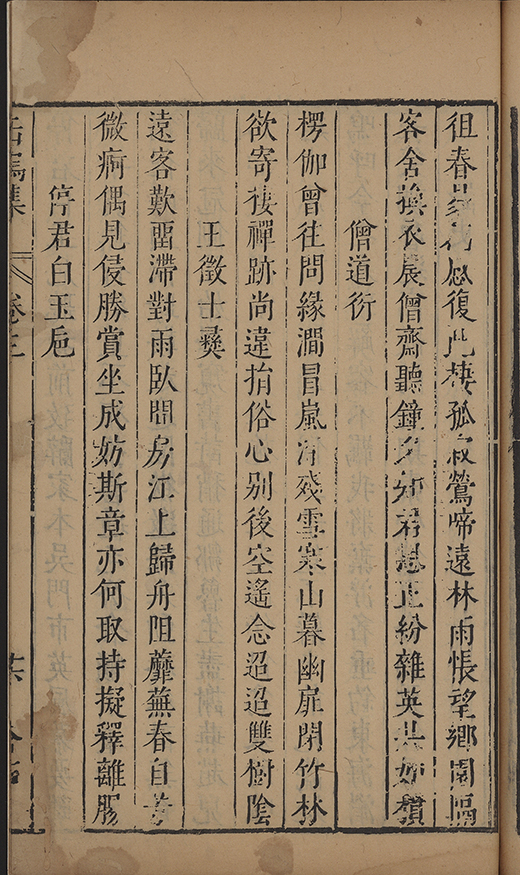 徂春
復
棲孤
鶯啼遠林雨悵望鄉園隔
客舍換衣晨僧齋聽鐘夕
正紛雜英共
僧道衍
楞伽曾往問緣澗冒嵐
殘雪寒山暮幽扉閉竹林
欲寄棲禪跡尚違捐俗心別後空遙念迢迢雙樹陰
王徵士彝
遠客歎留滯對雨臥閒房江上歸舟阻蘼蕪春自芳
微痾偶見侵勝賞坐成妨斯章亦何取持擬釋離腸
停君白玉卮
缶鳴集
卷三